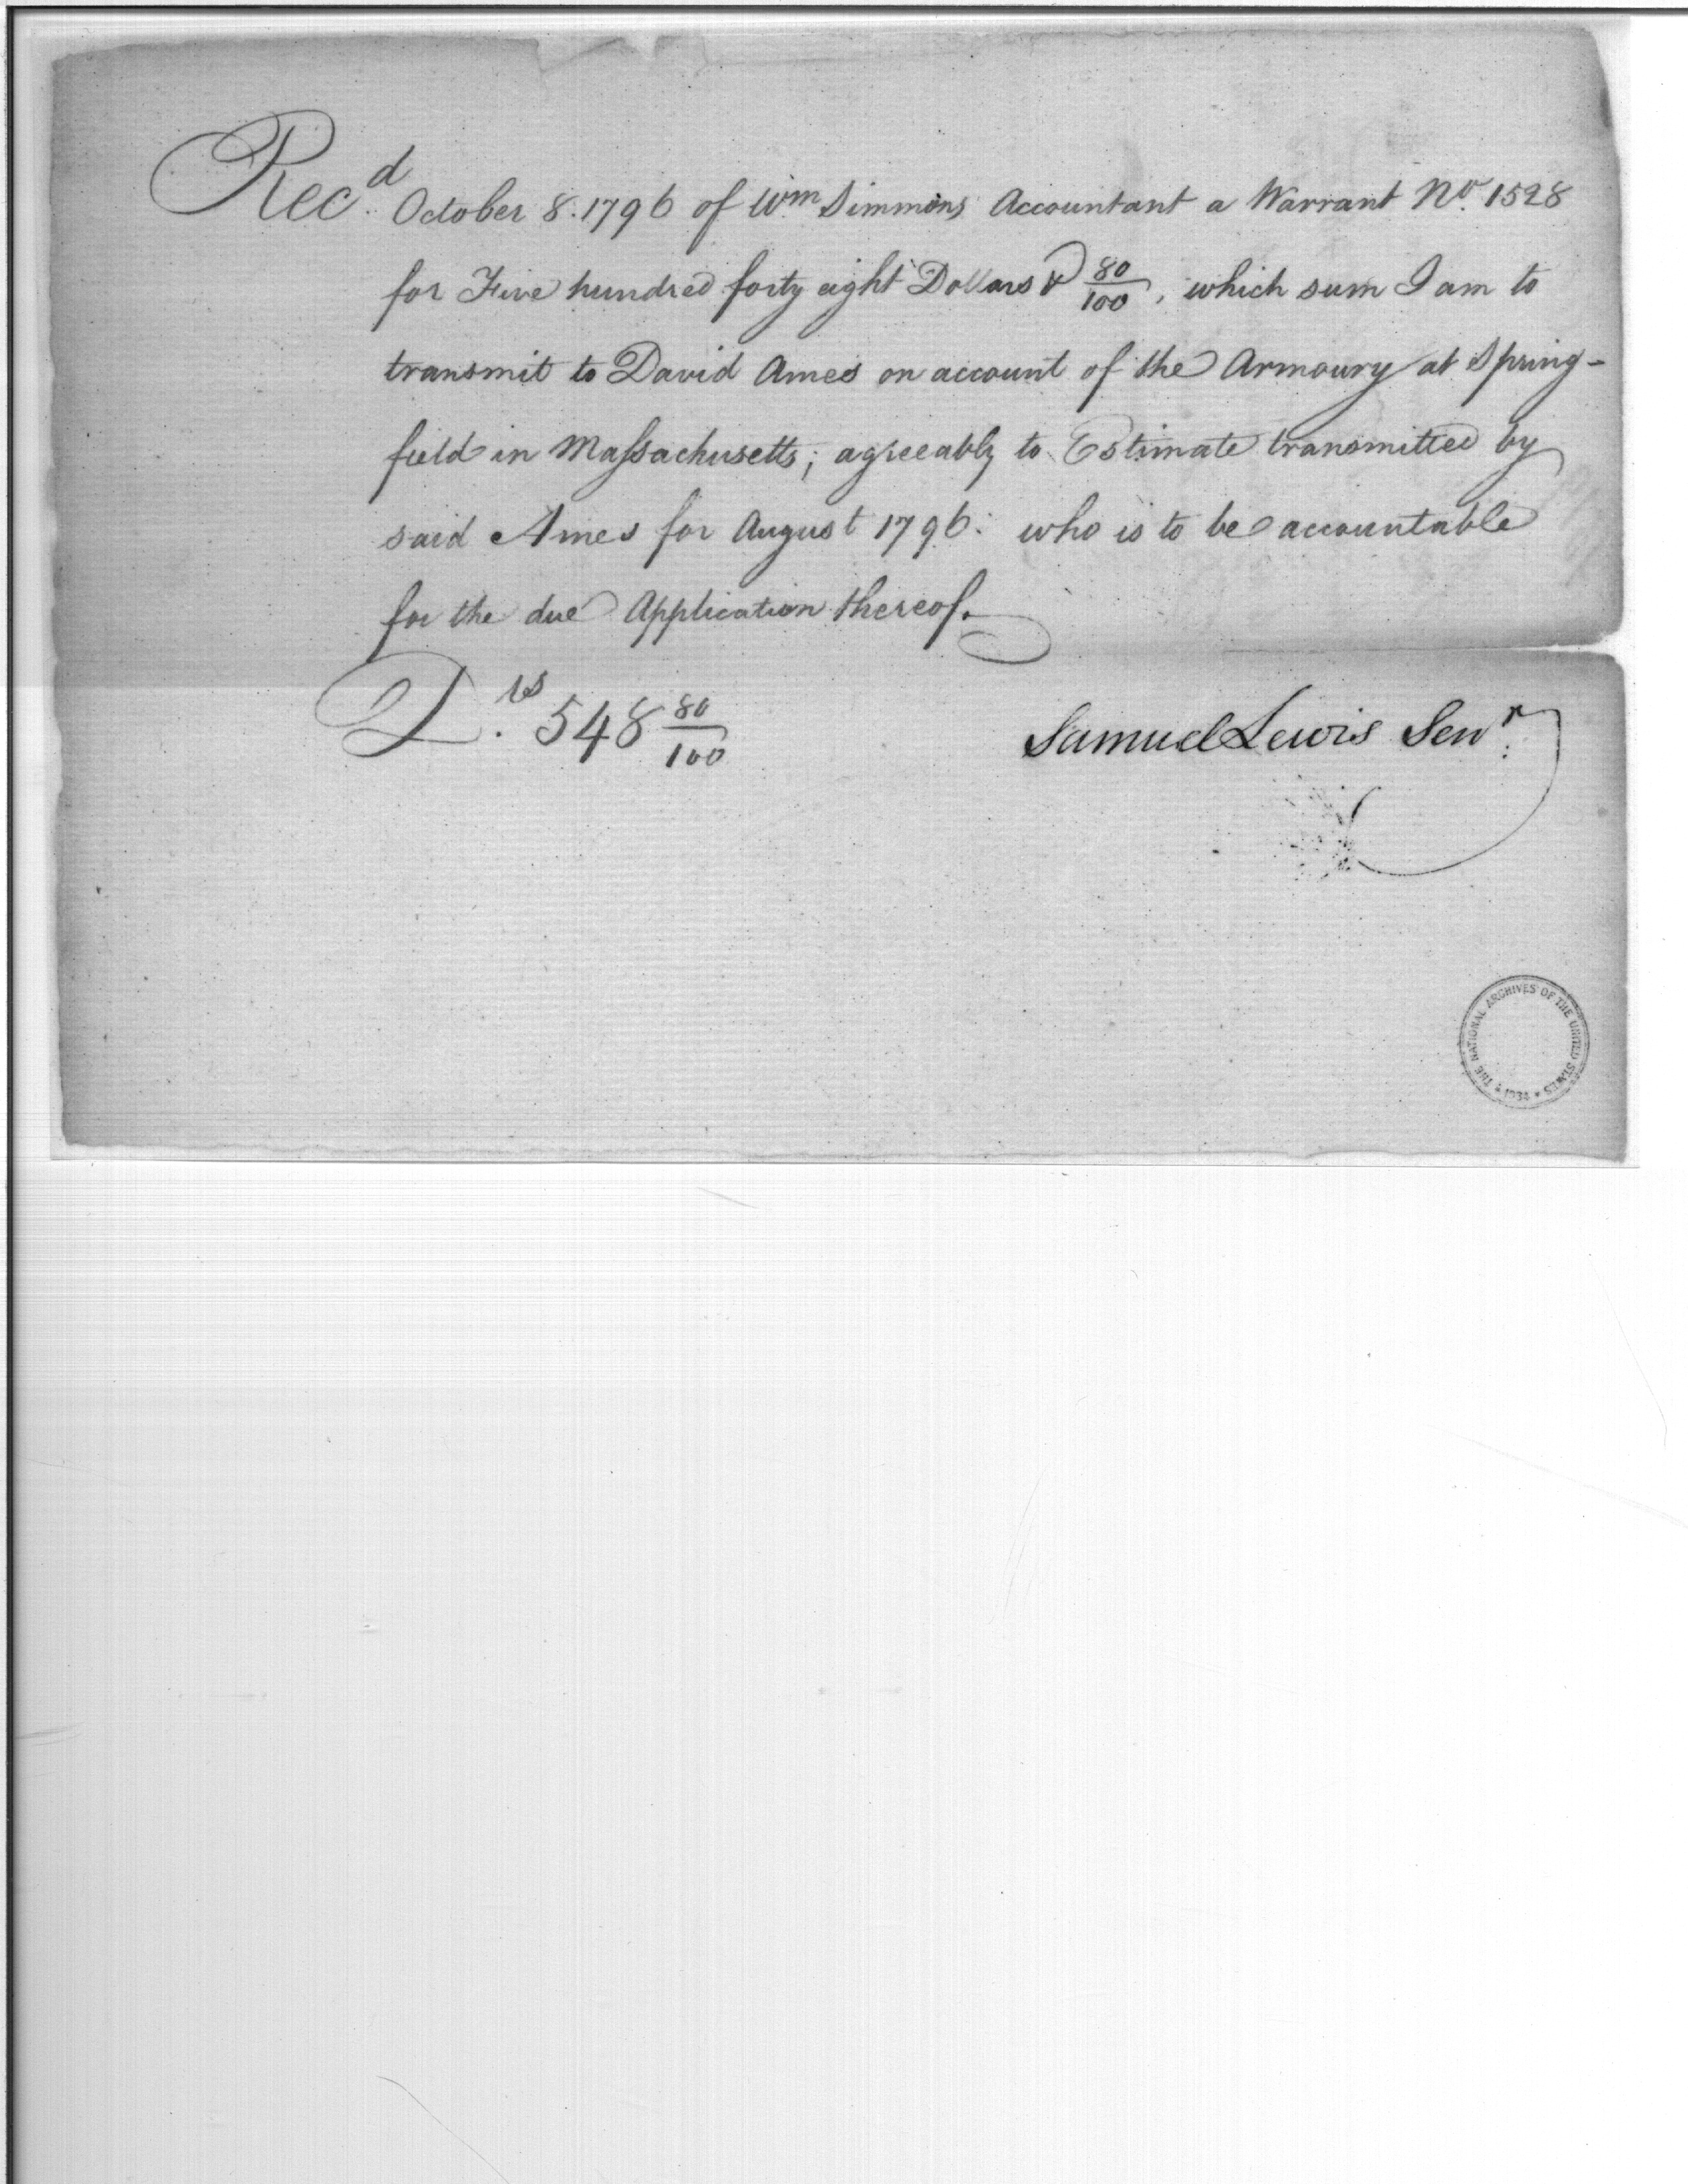 Recd. October 8. 1796 of Wm Simmons Accountant a Warrant No. 1528
for Five hundred forty eight Dollars & 80/100, which sum I am to
transmit to David Ames on account of the Armoury at Spring-
field in Maſsachusetts; agreeably to Estimate transmitted by
said Ames for August 1796: who is to be accountable
for the due Application thereof.
D.rs 548 80/100
Samuel Lewis Senr.
THE NATIONAL ARCHIVES OF THE UNITED STATES * 1934 *